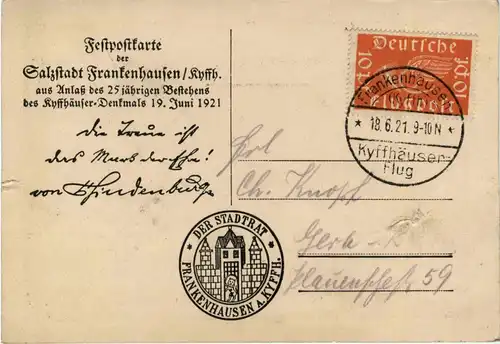 Festpostkarte
der
Salzstadt Frankenhausen/Kyffh.
aus Anlaß des 25jährigen Bestehens
des Kyffhäuser-Denkmals 19. Juni 1921
Die Treue ist
das Mark der Ehre!
von Hindenburg
DER STADTRAT
FRANKENHAUSEN A. KYFFH.
10 Pf. Deutsche 10 Pf.
Flugpost
Frankenhausen
* 18.6.21. 9-10 N *
Kyffhäuser-
Flug
Ch. Knopf
Gera-
59